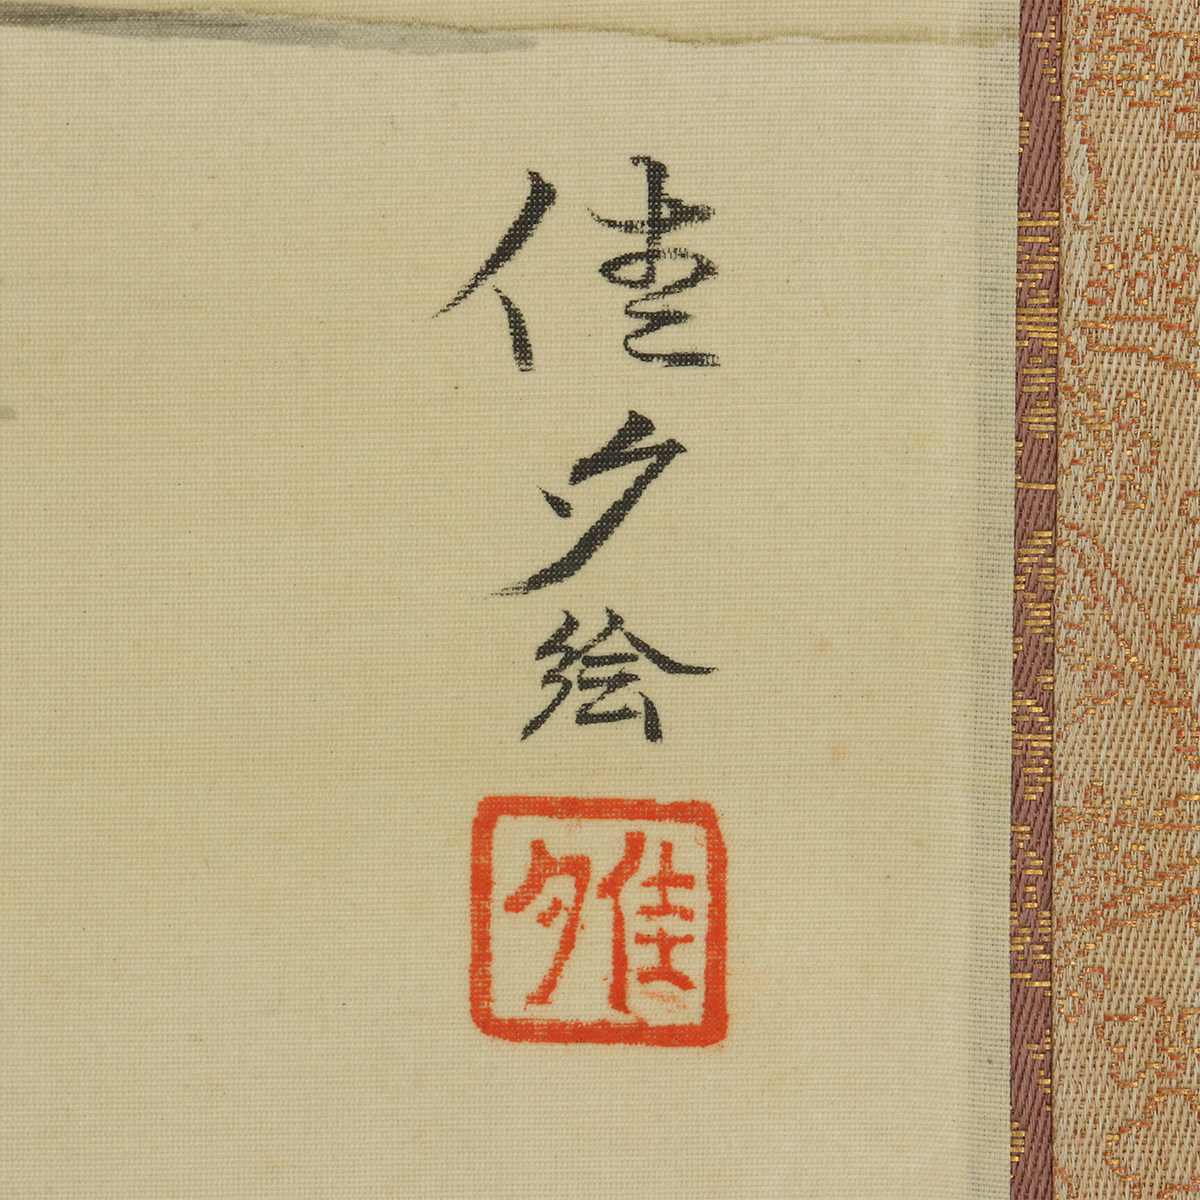 佳夕絵
佳夕